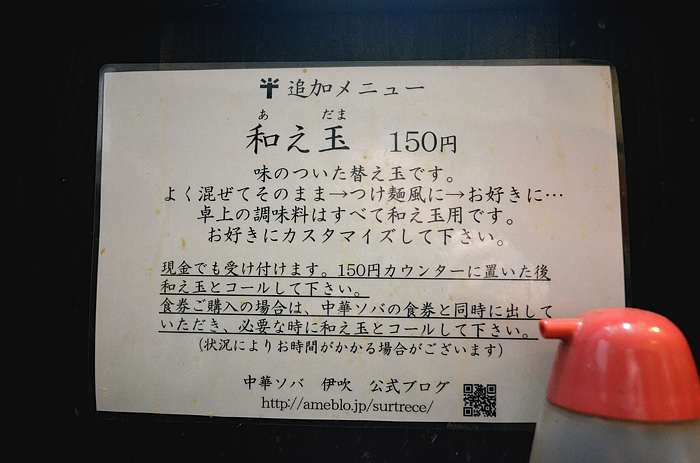 追加メニュー
あ だま
和え玉 150円
味のついた替え玉です。
よく混ぜてそのまま→つけ麺風に→お好きに…
卓上の調味料はすべて和え玉用です。
お好きにカスタマイズして下さい。
現金でも受け付けます。150円カウンターに置いた後
和え玉とコールして下さい。
食券ご購入の場合は、中華ソバの食券と同時に出して
いただき、必要な時に和え玉とコールして下さい。
(状況によりお時間がかかる場合がございます)
中華ソバ 伊吹 公式ブログ
http://ameblo.jp/surtrece/